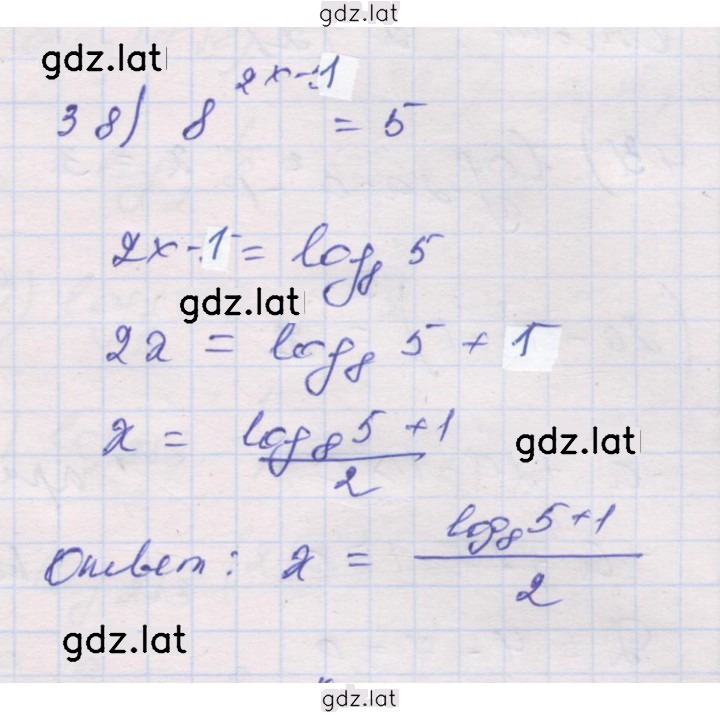 gdz.lat
gdz.lat
38) 8^(2x-1) = 5
2x-1 = log₈ 5
gdz.lat
2x = log₈ 5 + 1
x = (log₈ 5 + 1)/2
gdz.lat
Ответ: x = (log₈ 5 + 1)/2
gdz.lat
gdz.lat